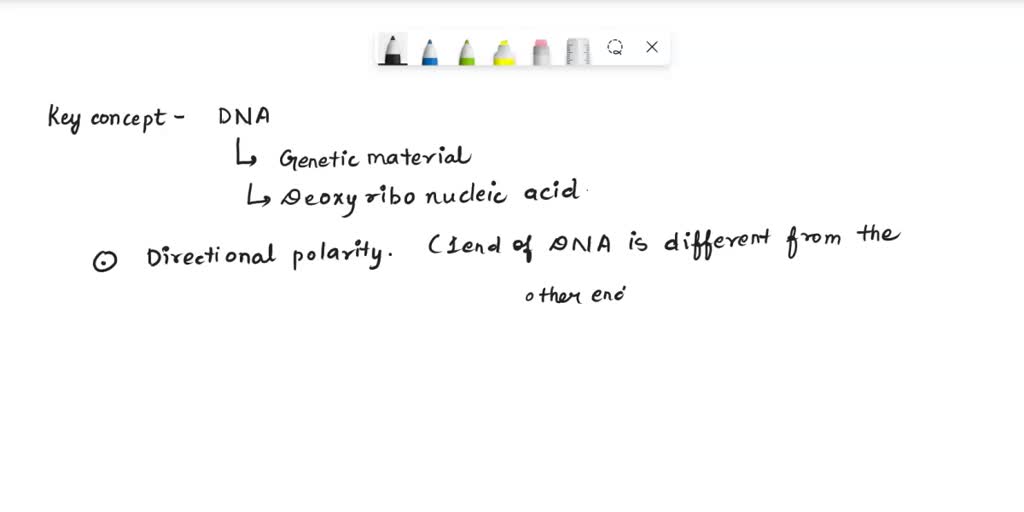 Key concept - DNA
↳ Genetic material
↳ Deoxy ribo nucleic acid.
⊙ Directional polarity. (1 end of DNA is different from the
other end